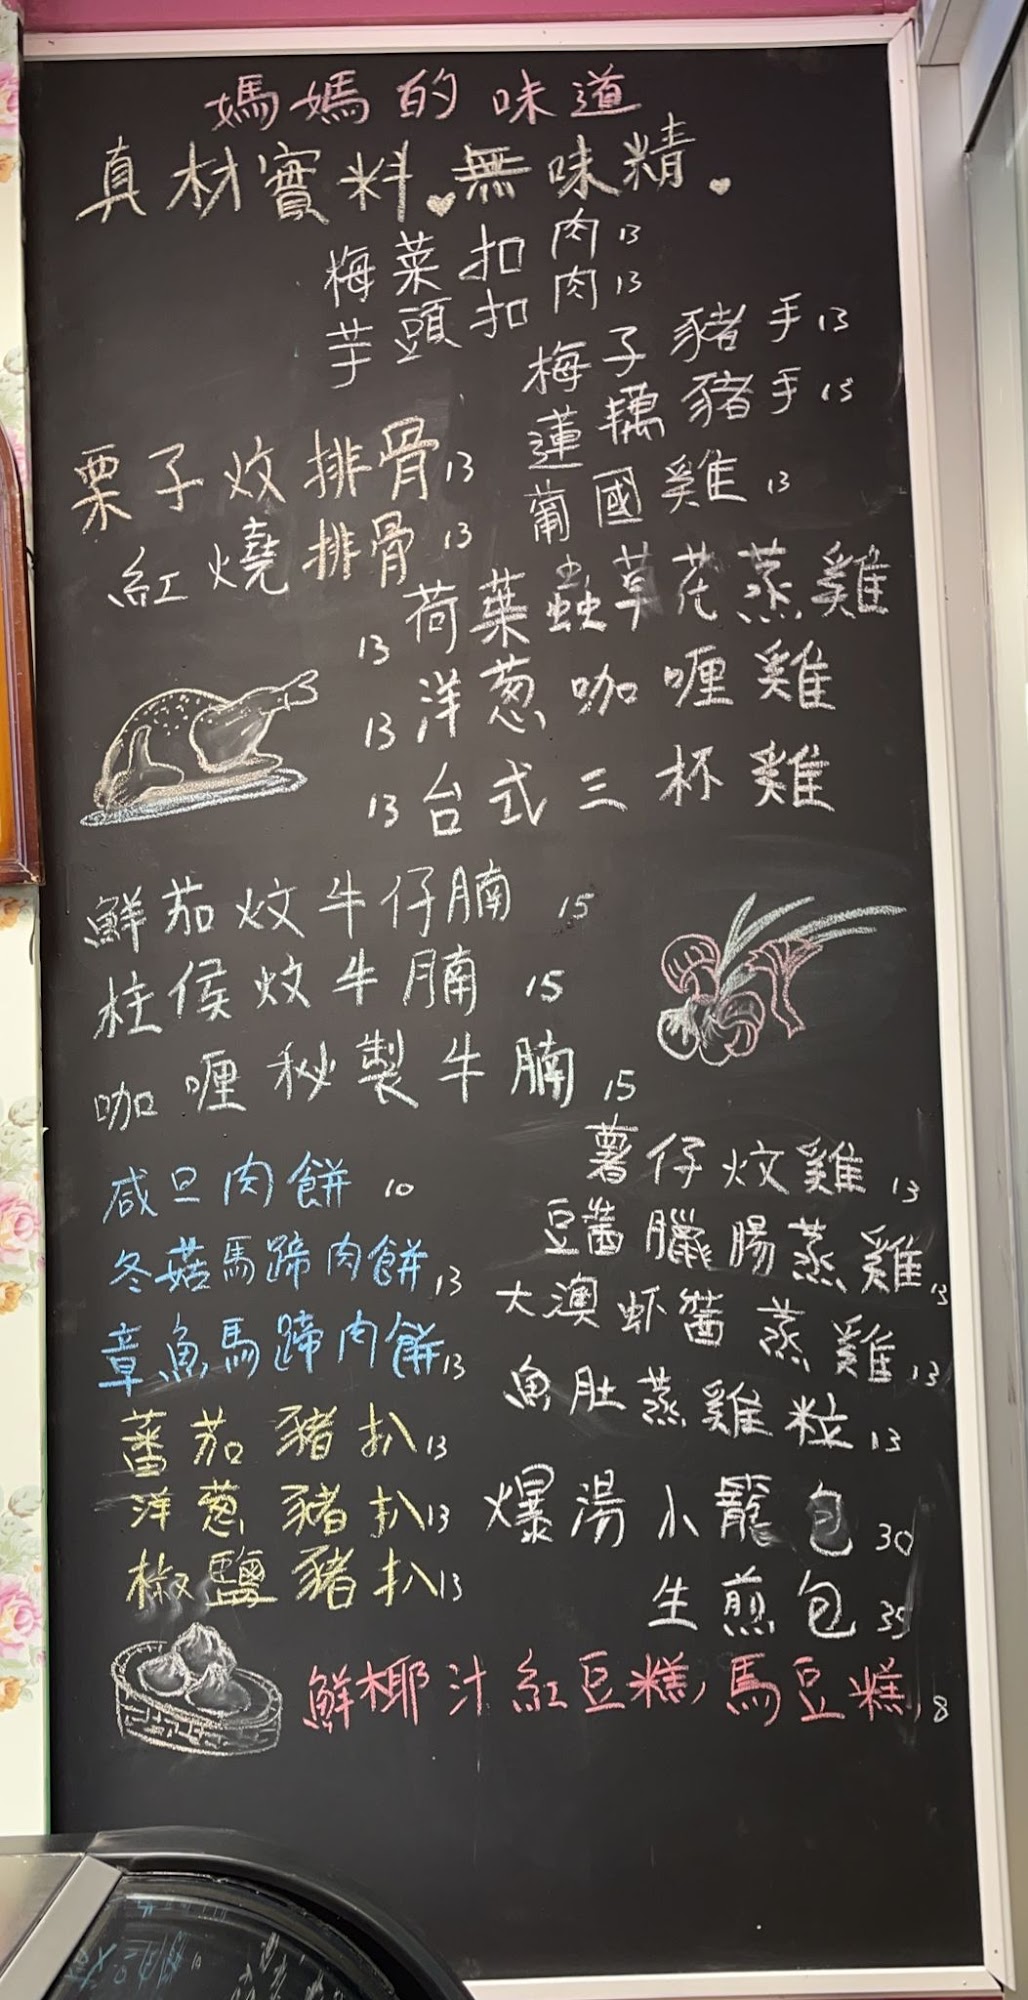 媽媽的味道
真材實料♥無味精♥
梅菜扣肉13
芋頭扣肉13
梅子豬手13
蓮藕豬手15
葡國雞13
栗子炆排骨13
紅燒排骨13
13荷葉蟲草花蒸雞
13洋葱咖喱雞
13台式三杯雞
鮮茄炆牛仔腩 15
柱侯炆牛腩 15
咖喱秘製牛腩 15
咸旦肉餅 10
冬菇馬蹄肉餅13
章魚馬蹄肉餅13
蕃茄豬扒13
洋葱豬扒13
椒鹽豬扒13
薯仔炆雞13
豆醬臘腸蒸雞13
大澳虾醬蒸雞13
魚肚蒸雞粒13
爆湯小籠包30
生煎包35
鮮椰汁紅豆糕,馬豆糕8